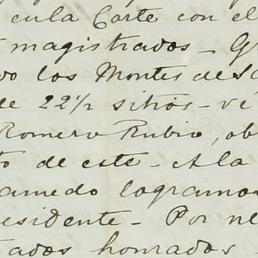 en la Corte con el
magistrados - G
vo los Montes de S
de 22½ sitios - ve
Romero Rubio, ob
to de este - A la
amedo logramos
esidente - Por ne
tados honrados